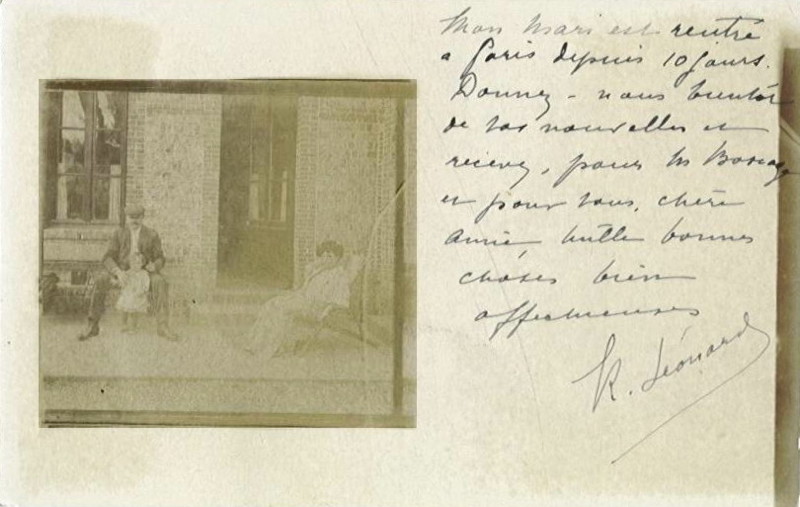 Mon mari est rentré
a Paris depuis 10 jours.
Donnez-nous bientôt
de vos nouvelles et
recevez, pour M Boscage
et pour vous, chère
amie, mille bonnes
choses bien
affectueuses
R. Léonard